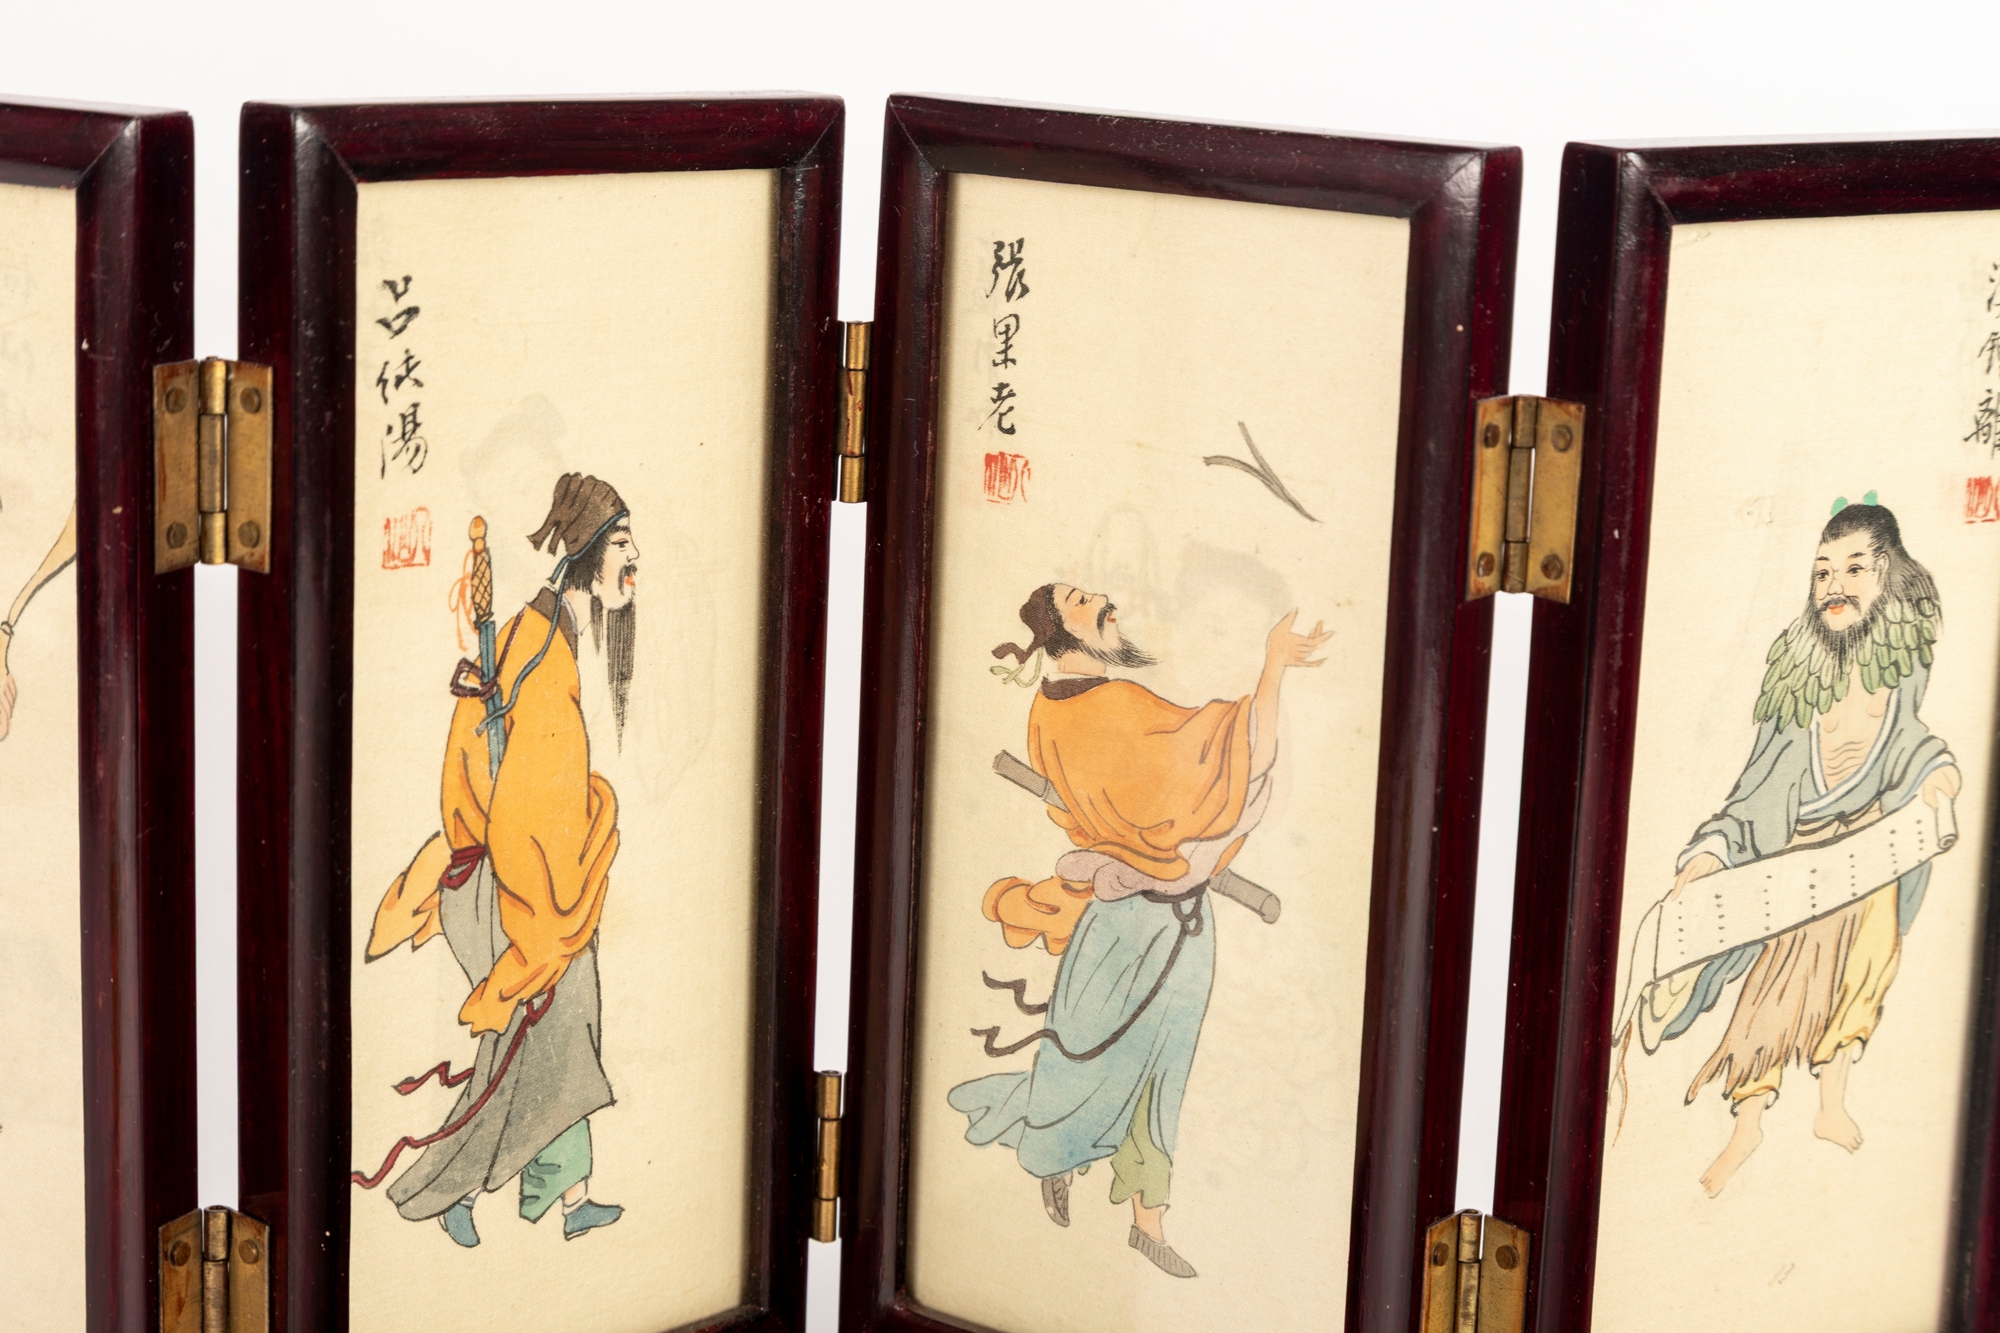 呂純陽
張果老
漢鍾離